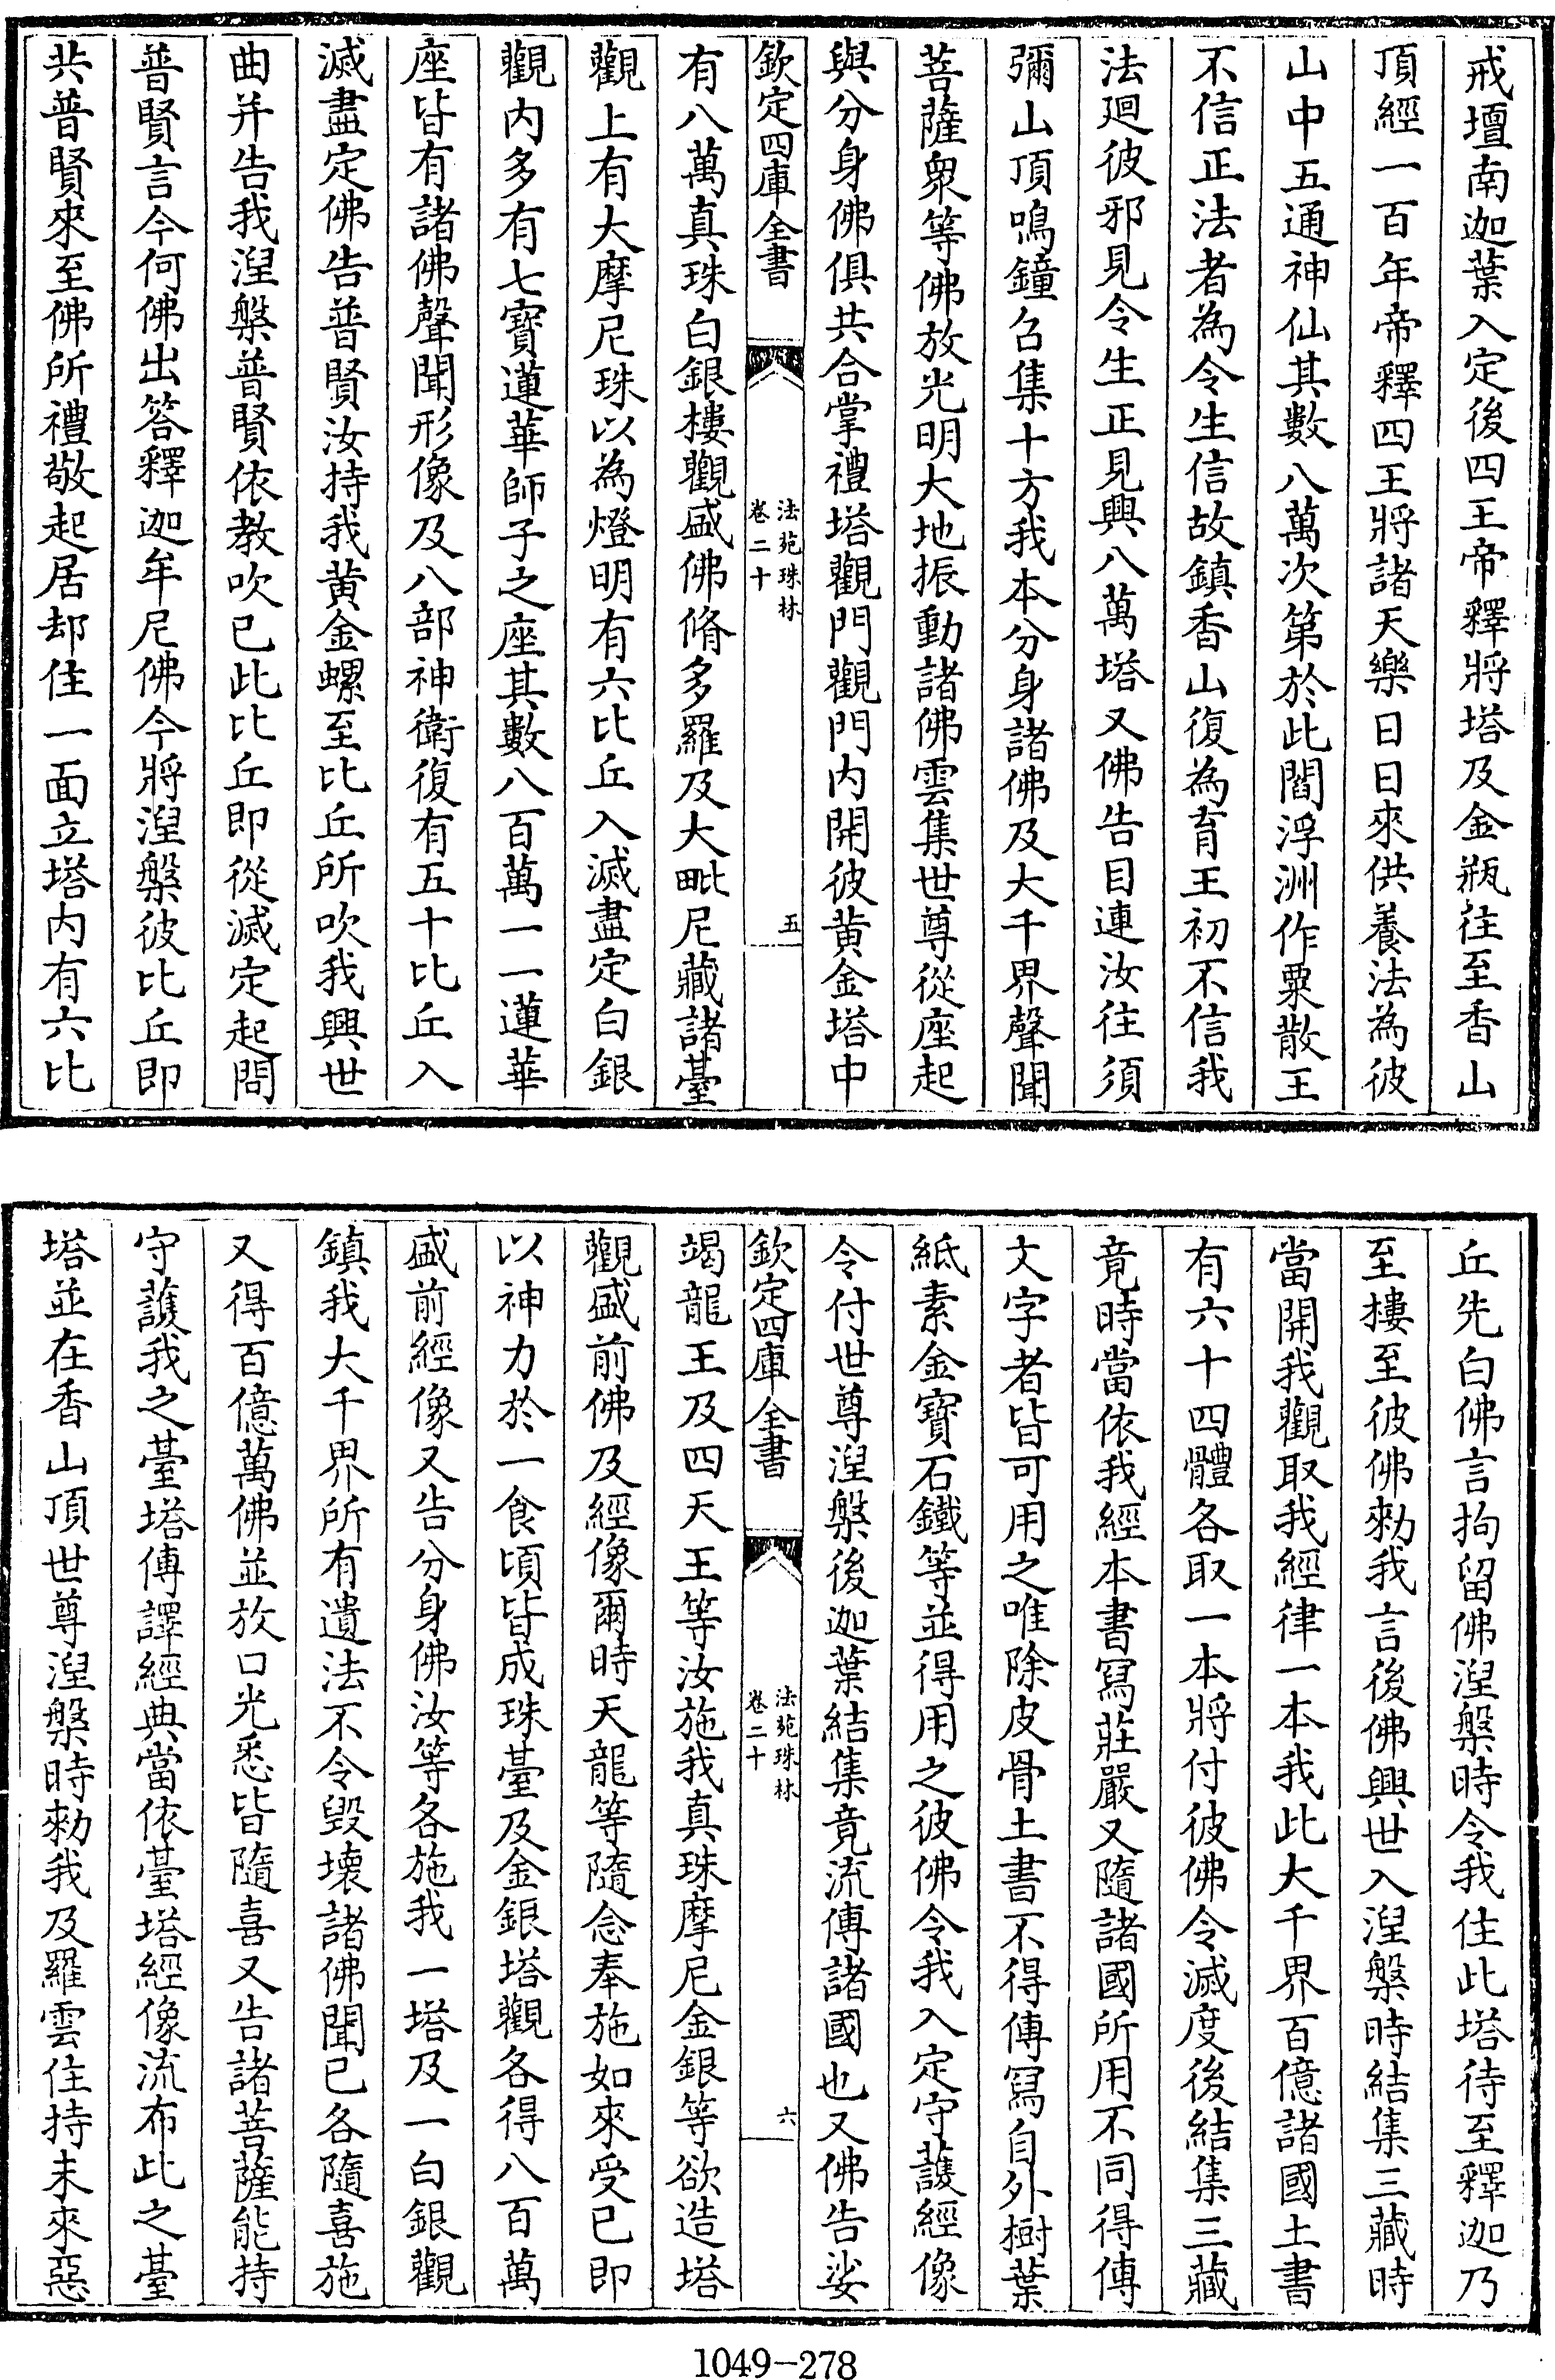 戒壇南迦葉入定後四王帝釋將塔及金瓶往至香山
頂經一百年帝釋四王將諸天樂日日來供養法為彼
山中五通神仙其數八萬次第於此閻浮洲作粟散王
不信正法者為令生信故鎮香山復為育王初不信我
法迴彼邪見令生正見興八萬塔又佛告目連汝往須
彌山頂鳴鐘召集十方我本分身諸佛及大千界聲聞
菩薩衆等佛放光明大地振動諸佛雲集世尊從座起
與分身佛俱共合掌禮塔觀門觀門内開彼黄金塔中
欽定四庫全書
法苑珠林
卷二十
五
有八萬真珠白銀樓觀盛佛脩多羅及大毗尼藏諸臺
觀上有大摩尼珠以為燈明有六比丘入滅盡定白銀
觀内多有七寶蓮華師子之座其數八百萬一一蓮華
座皆有諸佛聲聞形像及八部神衛復有五十比丘入
滅盡定佛告普賢汝持我黄金螺至比丘所吹我興世
曲并告我湼槃普賢依教吹已此比丘即從滅定起問
普賢言今何佛出答釋迦牟尼佛今將湼槃彼比丘即
共普賢來至佛所禮敬起居却住一面立塔内有六比
丘先白佛言拘留佛湼槃時令我住此塔待至釋迦乃
至樓至彼佛勑我言後佛興世入湼槃時結集三藏時
當開我觀取我經律一本我此大千界百億諸國土書
有六十四體各取一本將付彼佛令滅度後結集三藏
竟時當依我經本書寫莊嚴又隨諸國所用不同得傳
文字者皆可用之唯除皮骨土書不得傳寫自外樹葉
紙素金寶石鐵等並得用之彼佛令我入定守護經像
令付世尊湼槃後迦葉結集竟流傳諸國也又佛告娑
欽定四庫全書
法苑珠林
卷二十
六
竭龍王及四天王等汝施我真珠摩尼金銀等欲造塔
觀盛前佛及經像爾時天龍等隨念奉施如來受已即
以神力於一食頃皆成珠臺及金銀塔觀各得八百萬
盛前經像又告分身佛汝等各施我一塔及一白銀觀
鎮我大千界所有遺法不令毀壞諸佛聞已各隨喜施
又得百億萬佛並放口光悉皆隨喜又告諸菩薩能持
守護我之臺塔傳譯經典當依臺塔經像流布此之臺
塔並在香山頂世尊湼槃時勑我及羅雲住持未來惡
1049-278